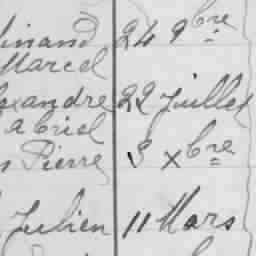 inand 24 9bre
Marcel
exandre 22 Juillet
abriel
Pierre 3 Xbre
Julien 11 Mars